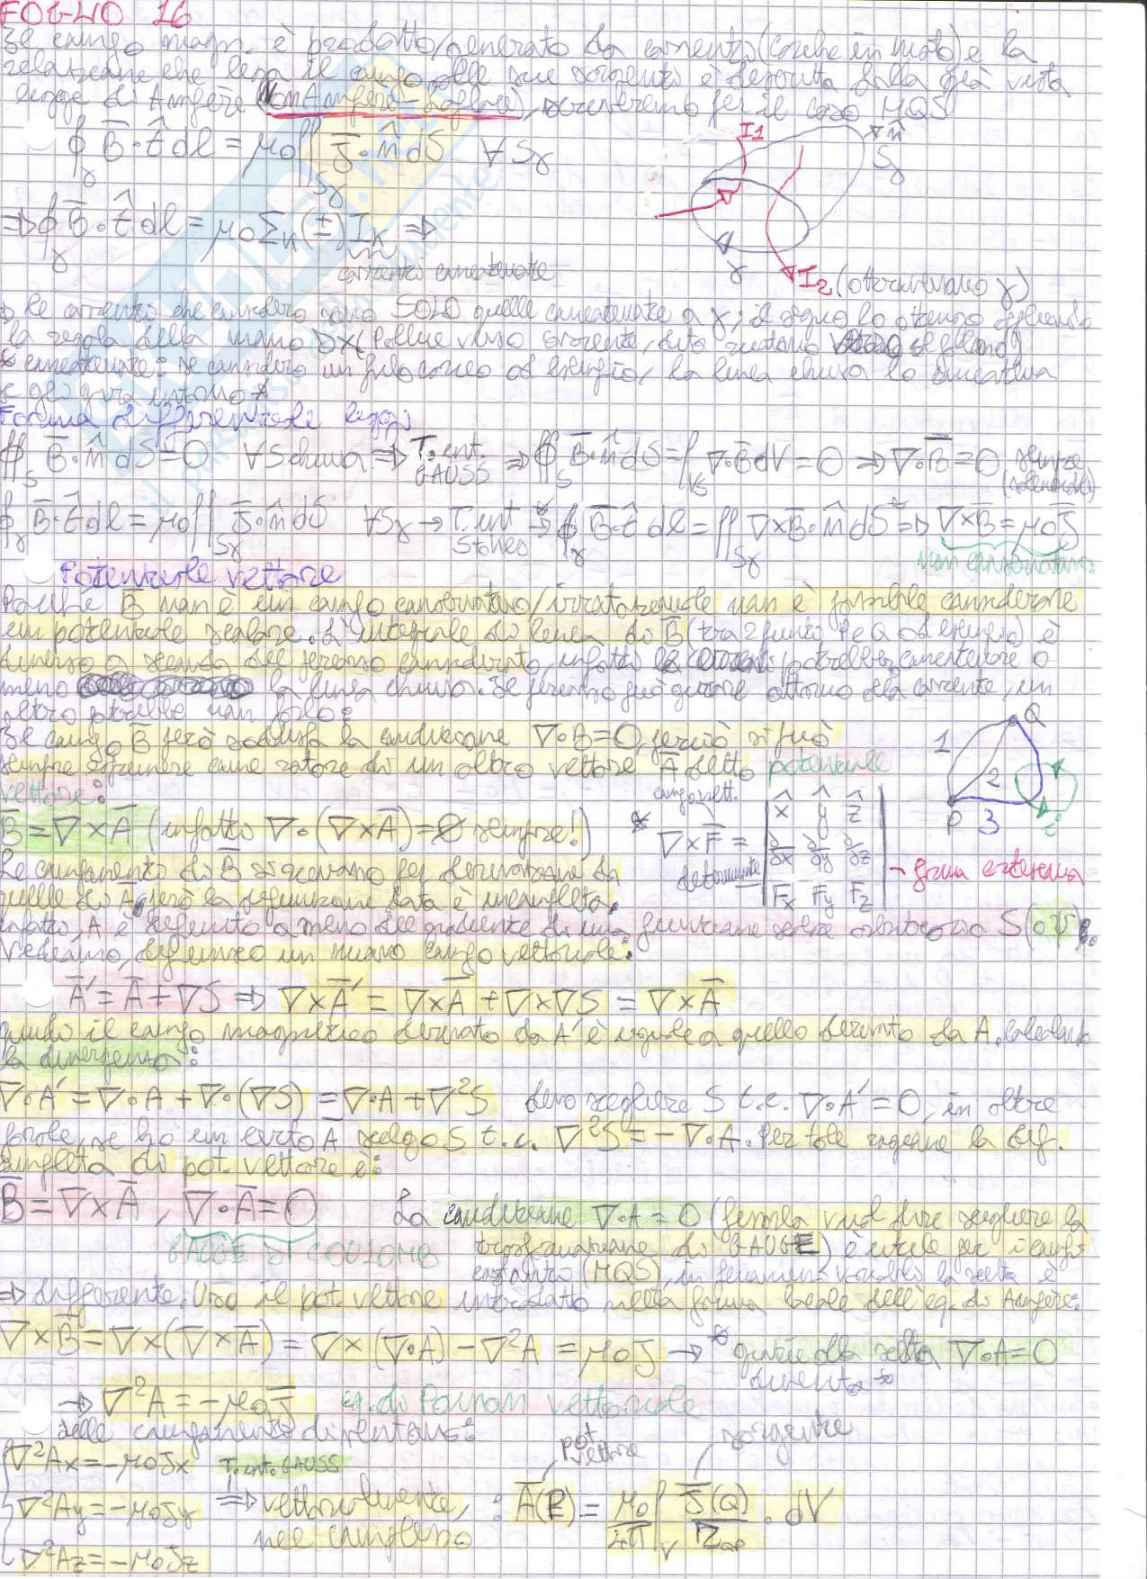 FOGLIO 16
Il campo magn. è prodotto/generato da correnti (cariche in moto) e la
relazione che lega il campo alle sue sorgenti è descritta dalla già vista
legge di Ampère (con Ampère-Laplace), scriveremo per il caso MQS
∮γ B̅·t̂ dl = μ0∬Sγ J̅·n̂ dS ∀Sγ
I1
n̂
Sγ
⇒ ∮γ B̅·t̂ dl = μ0 Σk(±)Ik ⇒
correnti concatenate
γ
I2 (attorniano γ)
Le correnti che considero sono SOLO quelle concatenate a γ; il segno lo ottengo seguendo
la regola della mano DX (Pollice verso corrente, dita ruotano
concatenate: se considero un filo conico ad esempio, la linea chiusa lo
e gli gira intorno*
Forma differenziale leggi
∯S B̅·n̂ dS = 0 ∀S chiusa ⇒ T. ent. GAUSS ⇒ ∯S B̅·n̂ dS = ∫VS ∇·B̅ dV = 0 ⇒ ∇·B̅ = 0 sempre
(solenoidale)
∮γ B̅·t̂ dl = μ0∬Sγ J̅·n̂ dS ∀Sγ → T. ent Stokes → ∮γ B̅·t̂ dl = ∬Sγ ∇×B̅·n̂ dS ⇒ ∇×B̅ = μ0J̅
Non conservativo
Potenziale vettore
Poiché B̅ non è un campo conservativo/irrotazionale non è possibile considerare
un potenziale scalare. L'integrale di linea di B̅ (tra 2 punti P e Q ad esempio) è
diverso a seconda del percorso considerato, infatti potrebbe concatenare o
meno la linea chiusa. Se percorso può girare attorno alla corrente, un
altro potrebbe non farlo:
Il campo B̅ però soddisfa la condizione ∇·B=0, perciò si può
sempre esprimere come rotore di un altro vettore A̅ detto potenziale
vettore:
1
2
3
P
Q
i
campo vett.
B̅ = ∇×A̅ (infatti ∇·(∇×A̅)=0 sempre!)
* ∇×F̅ = determinante | x̂ ŷ ẑ
∂/∂x ∂/∂y ∂/∂z
Fx Fy Fz | → forma cartesiana
Le componenti di B̅ si ricavano per derivazione da
quelle di A̅, però la definizione data è incompleta,
infatti, A̅ è definito a meno del gradiente di una funzione scalare arbitraria S
Vediamo, definisco un nuovo campo vettoriale:
A̅' = A̅ + ∇S ⇒ ∇×A̅' = ∇×A̅ + ∇×∇S = ∇×A̅
quindi il campo magnetico derivato da A' è uguale a quello derivato da A. Calcoliamo
la divergenza:
∇·A' = ∇·A + ∇·(∇S) = ∇·A + ∇²S devo scegliere S t.c. ∇·A' = 0, in altre
parole, se ho un certo A scelgo S t.c. ∇²S = -∇·A. Per tale ragione la def.
completa di pot. vettore è:
B̅ = ∇×A̅ , ∇·A̅ = 0
GAUGE DI COULOMB
La condizione ∇·A = 0 (fissarla vuol dire scegliere la
trasformazione di GAUGE) è utile per i campi
(MQS), in fenomeni variabili la scelta è
⇒ differente. Uso il pot. vettore introdotto nella forma locale dell'eq. di Ampère:
∇×B̅ = ∇×(∇×A̅) = ∇×(∇·A) - ∇²A = μ0J → * grazie alla scelta ∇·A=0
diventa →
→ ∇²A = -μ0J̅ eq. di Poisson vettoriale
nelle componenti diventano:
∇²Ax = -μ0Jx
∇²Ay = -μ0Jy
∇²Az = -μ0Jz
T. ent. GAUSS
⇒ vettorialmente,
nel complesso
pot. vettore
sorgente
: A̅(P) = μ0/4π ∫V J̅(Q)/rQP · dV